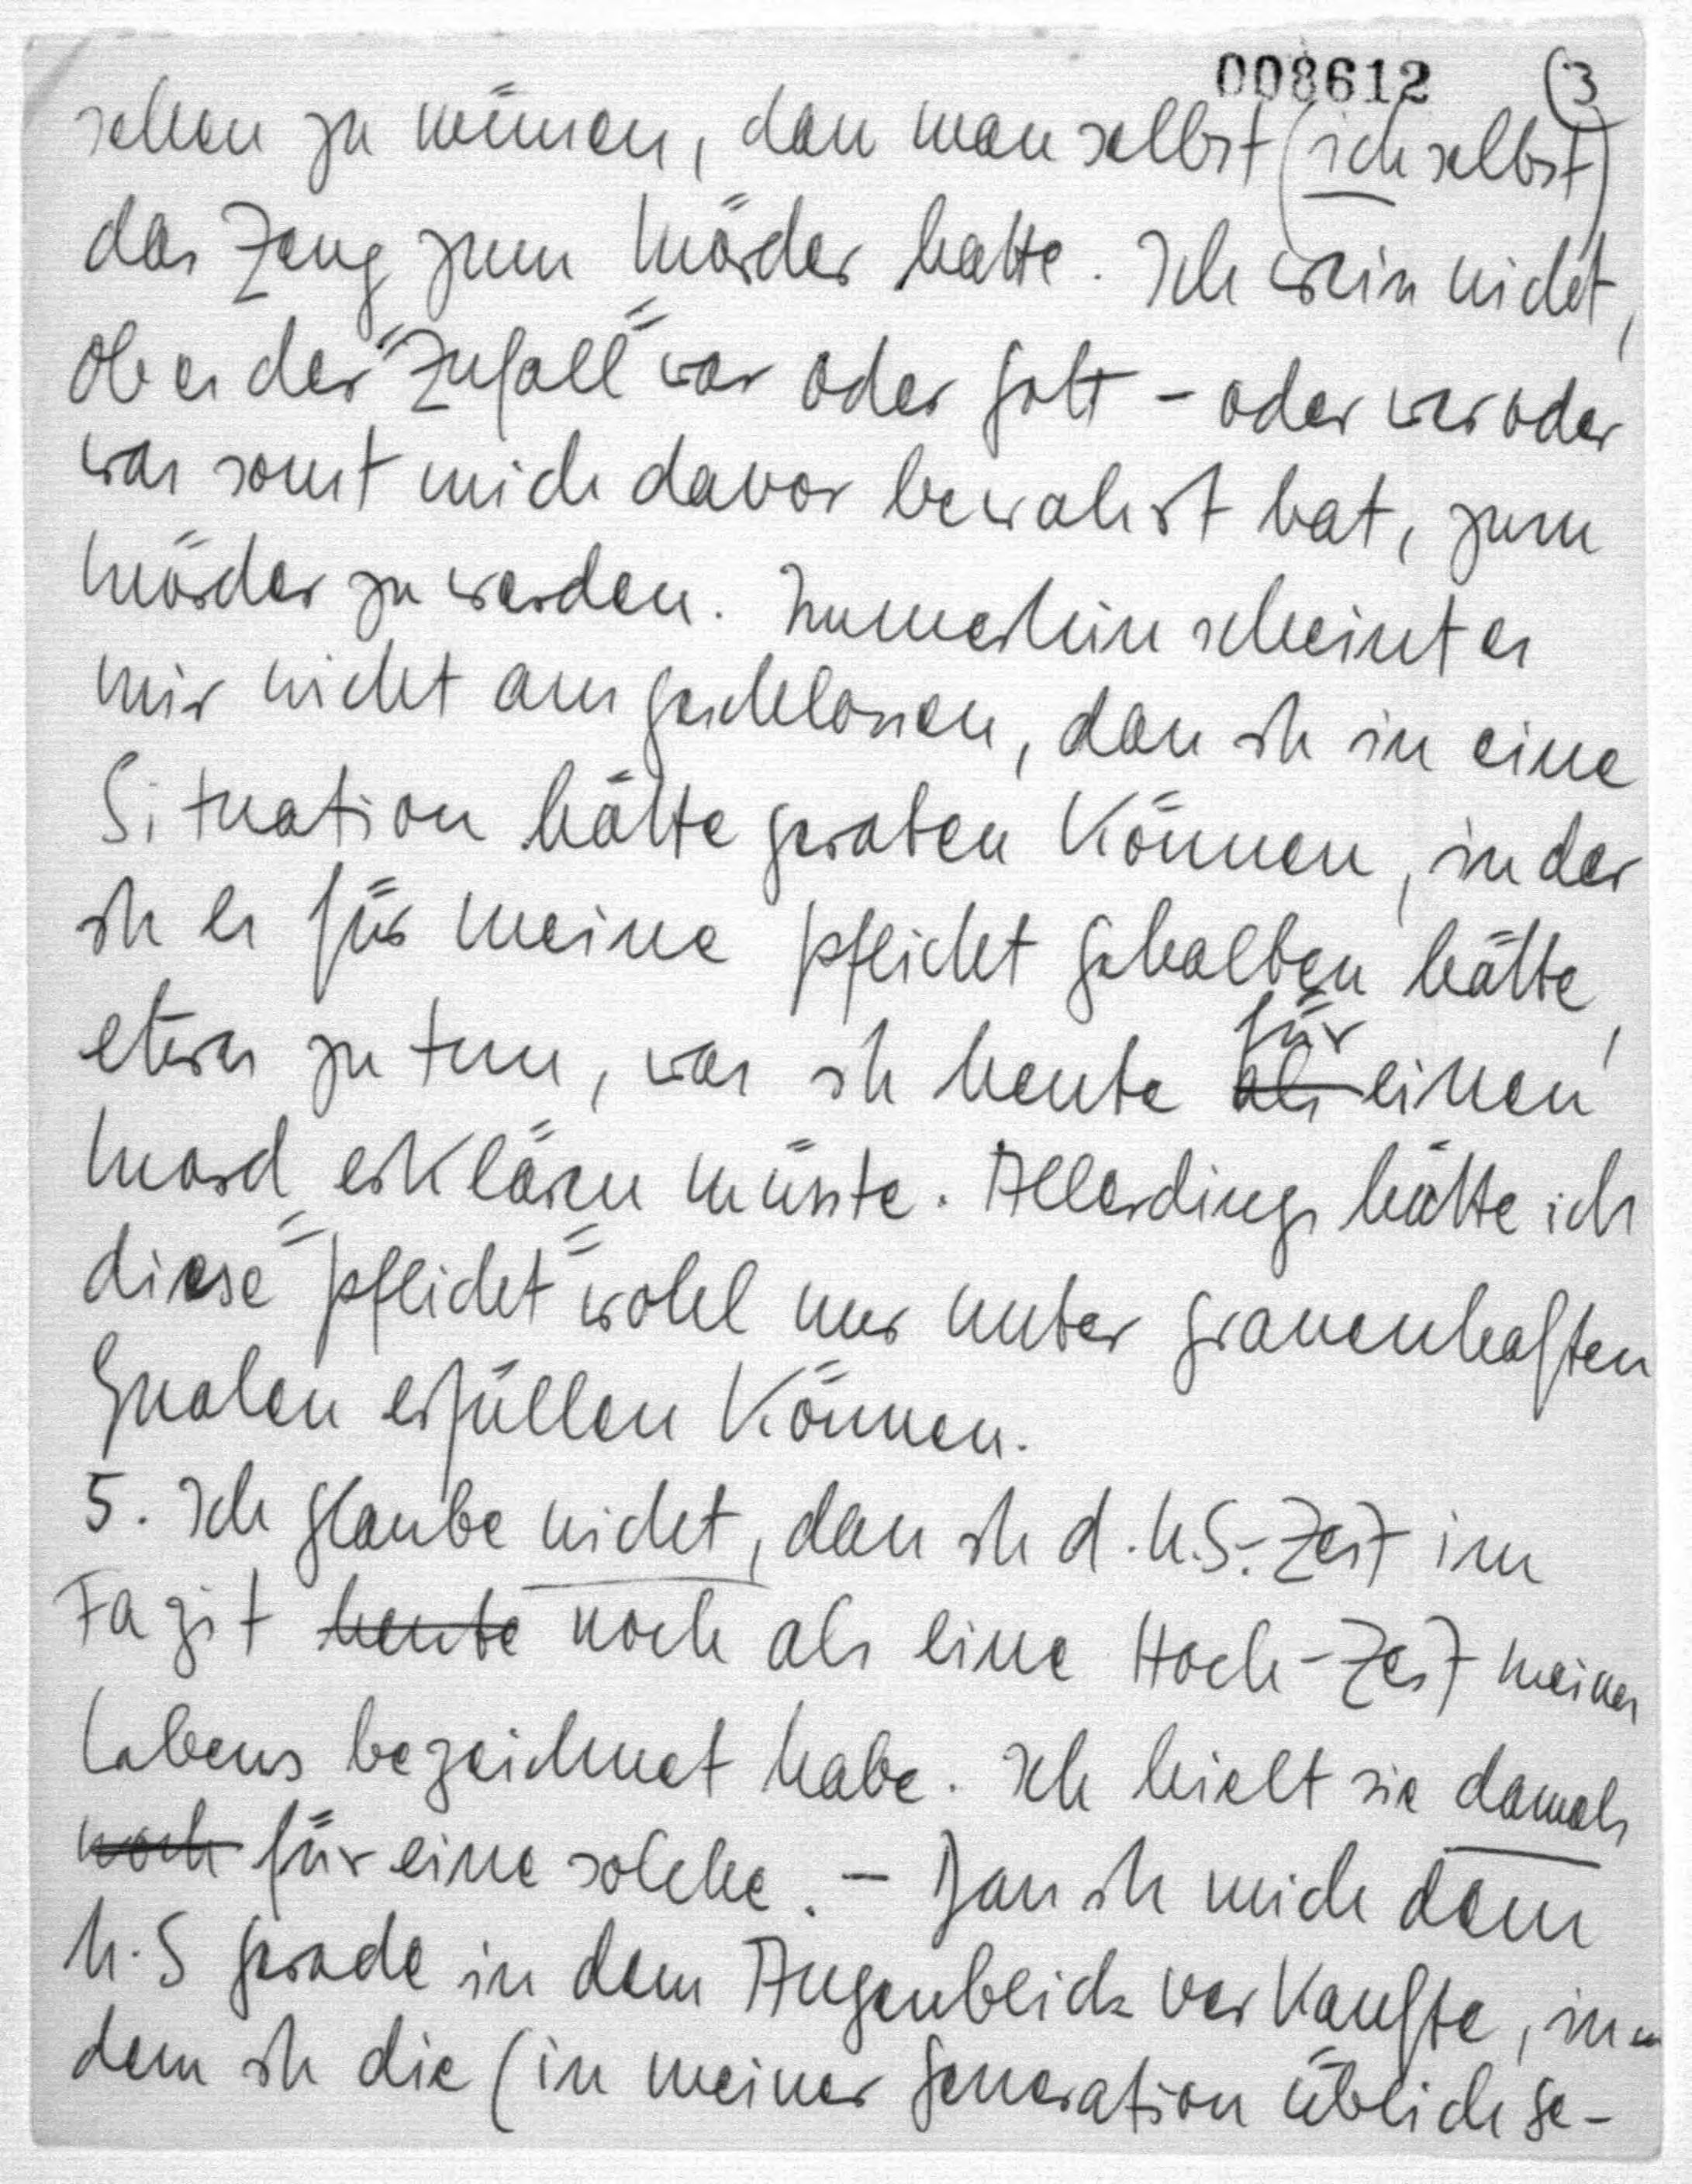 008612 (3
sehen zu müssen, dass man selbst (ich selbst)
das Zeug zum Mörder hatte. Ich weiss nicht,
ob es der "Zufall" war oder Gott – oder wer oder
was sonst mich davor bewahrt hat, zum
Mörder zu werden. Immerhin scheint es
mir nicht ausgeschlossen, dass ich in eine
Situation hätte geraten können, in der
ich es für meine Pflicht gehalten hätte,
etwas zu tun, was ich heute als für einen
Mord erklären müsste. Allerdings hätte ich
diese "Pflicht" wohl nur unter grauenhaften
Qualen erfüllen können.
5. Ich glaube nicht, dass ich d. N.S.-Zeit im
Fazit heute noch als eine Hoch-Zeit meines
Lebens bezeichnet habe. Ich hielt sie damals
noch für eine solche. – Dass ich mich dem
N.S gerade in dem Augenblick verkaufte, in-
dem ich die (in meiner Generation üblich ge-